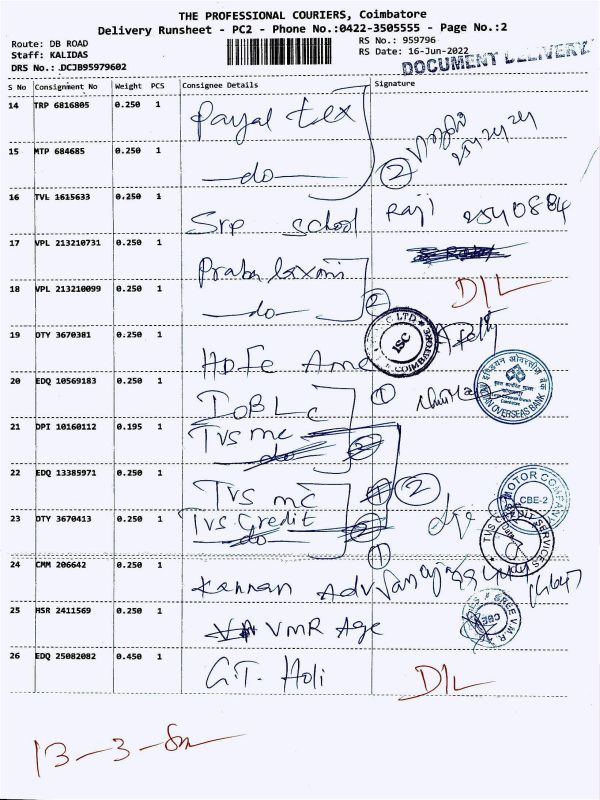 THE PROFESSIONAL COURIERS, Coimbatore
Delivery Runsheet - PC2 - Phone No.:0422-3505555 - Page No.:2
Route: DB ROAD
RS No.: 959796
Staff: KALIDAS
RS Date: 16-Jun-2022
DRS No.: DCJB95979602
DOCUMENT DELIVERY
S No Consignment No Weight PCS Consignee Details Signature
14 TRP 6816805 0.250 1 Payal tex
15 MTP 684685 0.250 1 —do— 2
16 TVL 1615633 0.250 1 Srp school Raji
17 VPL 213210731 0.250 1 Praba laxmi
18 VPL 213210099 0.250 1 —do— 2 D/L
19 DTY 3670381 0.250 1
ISC
COIMBATORE
20 EDQ 10569183 0.250 1 1
INDIAN OVERSEAS BANK
21 DPI 10160112 0.195 1 TVS mc
22 EDQ 13385971 0.250 1 TVS mc 2
MOTOR COMPANY
CBE-2
23 DTY 3670413 0.250 1 TVS Credit 1
TVS CREDIT SERVICES
24 CMM 206642 0.250 1 Kannan Adv
25 HSR 2411569 0.250 1 VMR Age
SREE V.M.R.
CBE
26 EDQ 25082082 0.450 1 G.T. Holi D/L